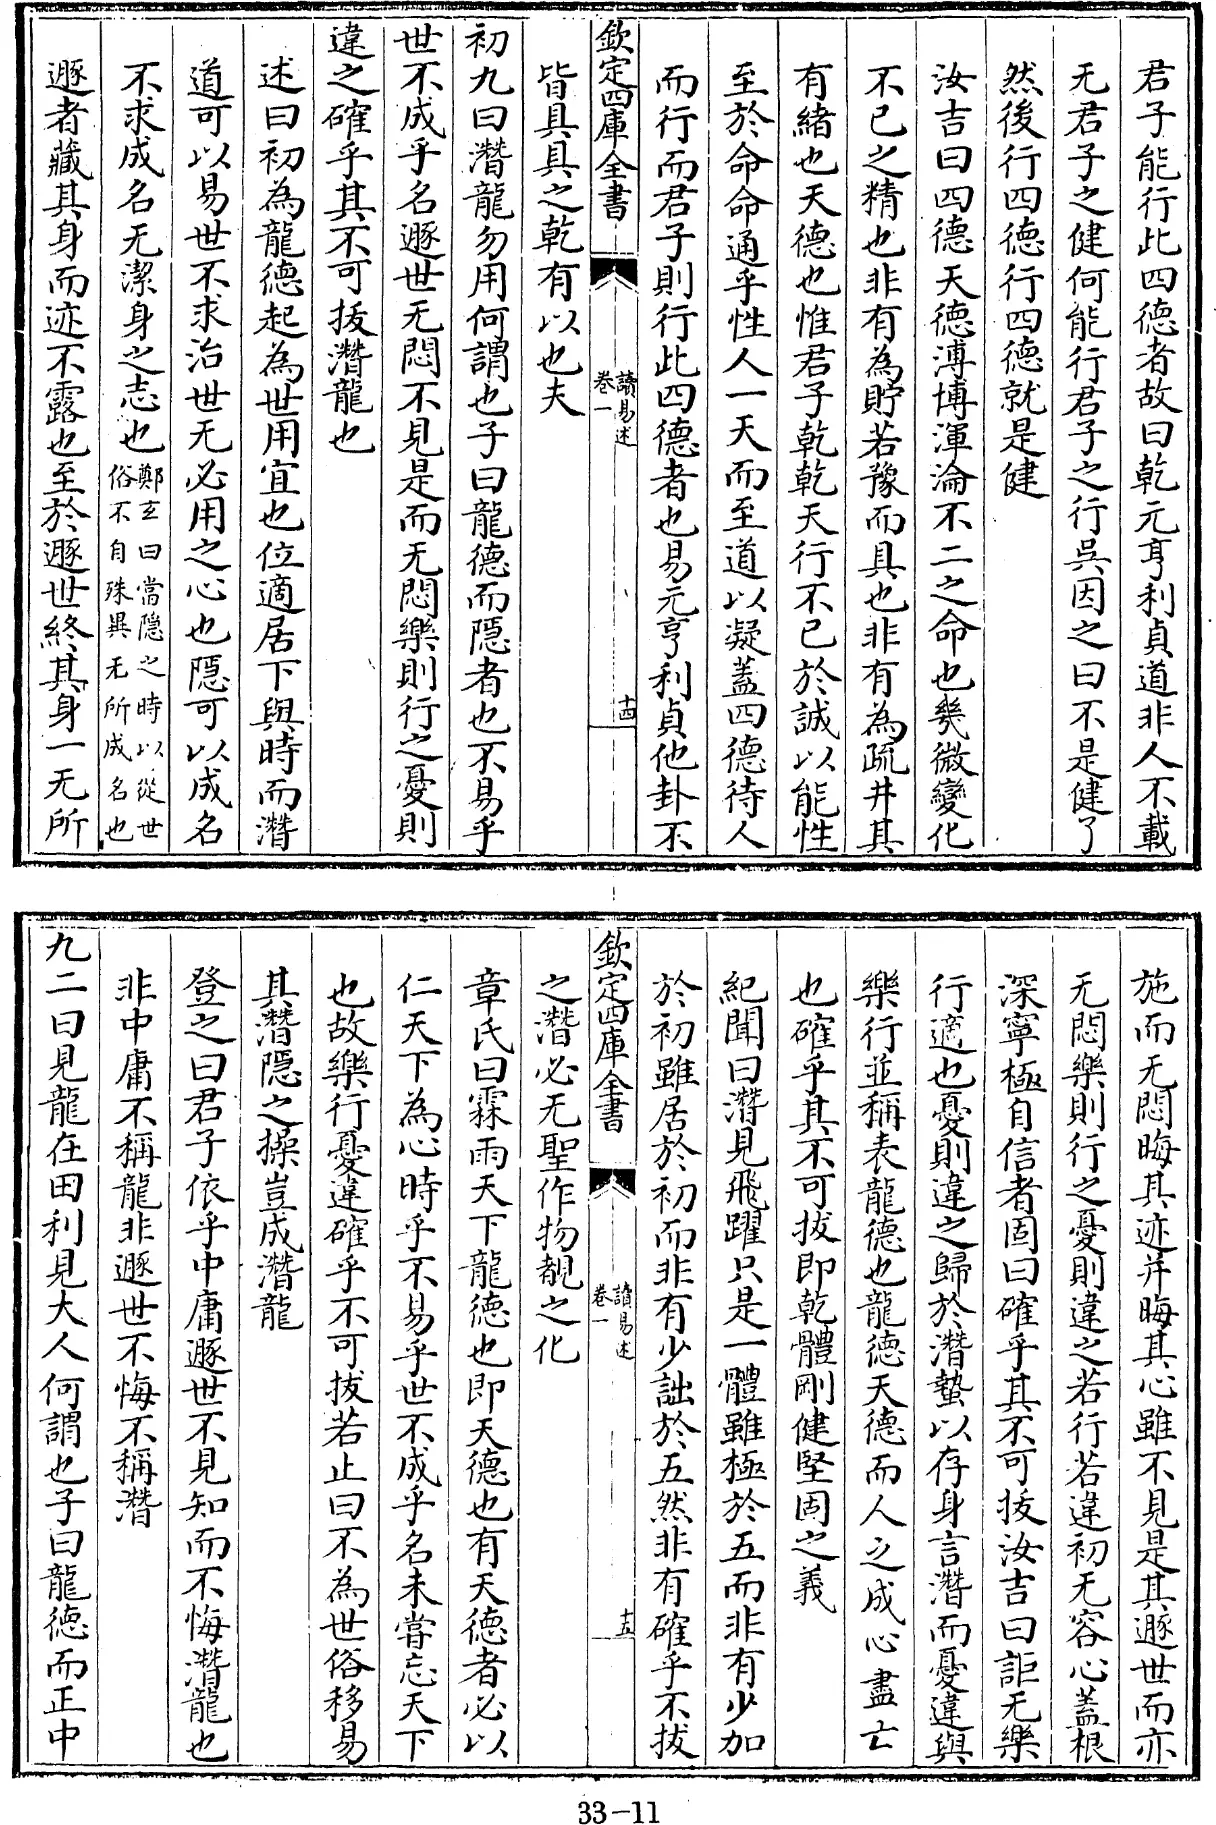 君子能行此四德者故曰乾元亨利貞道非人不載
无君子之健何能行君子之行吳因之曰不是健了
然後行四德行四德就是健
汝吉曰四德天德溥博渾淪不二之命也幾微變化
不已之精也非有為貯若豫而具也非有為疏井其
有緒也天德也惟君子乾乾天行不已於誠以能性
至於命命通乎性人一天而至道以凝蓋四德待人
而行而君子則行此四德者也易元亨利貞他卦不
欽定四庫全書
讀易述
卷一
十四
皆具具之乾有以也夫
初九曰潛龍勿用何謂也子曰龍德而隱者也不易乎
世不成乎名遯世无悶不見是而无悶樂則行之憂則
違之確乎其不可拔潛龍也
述曰初為龍德起為世用宜也位適居下與時而潛
道可以易世不求治世无必用之心也隱可以成名
不求成名无潔身之志也
鄭玄曰當隐之時以從世
俗不自殊異无所成名也
遯者藏其身而迹不露也至於遯世終其身一无所
施而无悶晦其迹并晦其心雖不見是其遯世而亦
无悶樂則行之憂則違之若行若違初无容心蓋根
深寧極自信者固曰確乎其不可拔汝吉曰詎无樂
行適也憂則違之歸於潛蟄以存身言潛而憂違與
樂行並稱表龍德也龍德天德而人之成心盡亡
也確乎其不可拔即乾體剛健堅固之義
紀聞曰潛見飛躍只是一體雖極於五而非有少加
於初雖居於初而非有少詘於五然非有確乎不拔
欽定四庫全書
讀易述
卷一
十五
之潛必无聖作物覩之化
章氏曰霖雨天下龍德也即天德也有天德者必以
仁天下為心時乎不易乎世不成乎名未嘗忘天下
也故樂行憂違確乎不可拔若止曰不為世俗移易
其潛隱之操豈成潛龍
登之曰君子依乎中庸遯世不見知而不悔潛龍也
非中庸不稱龍非遯世不悔不稱潛
九二曰見龍在田利見大人何謂也子曰龍德而正中
33-11